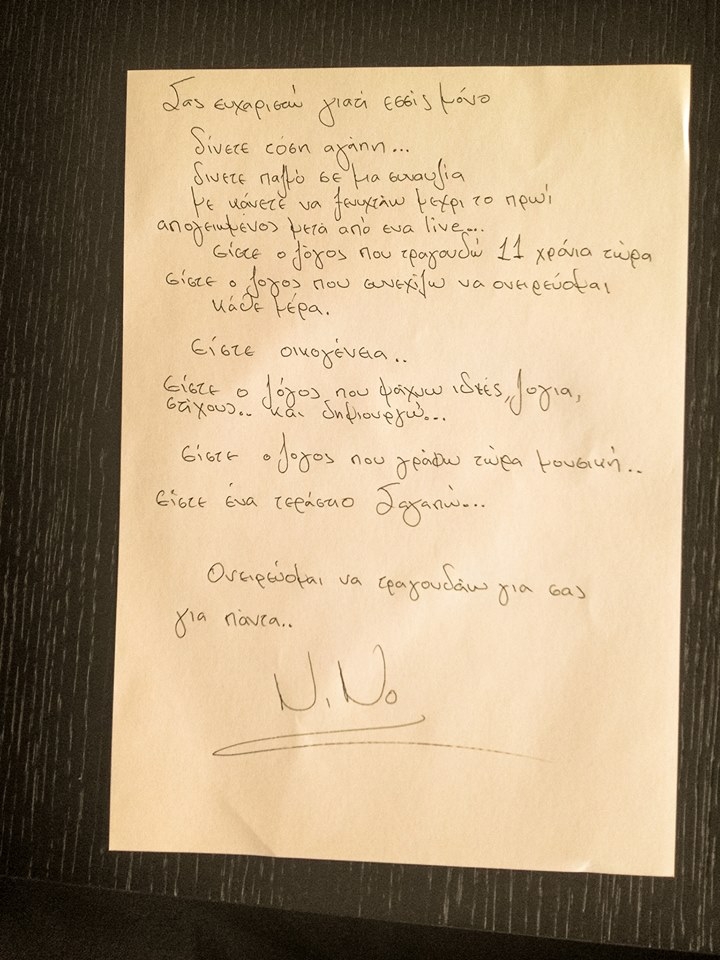 Σας ευχαριστώ γιατί εσείς μόνο
δίνετε τόση αγάπη...
δινετε παλμό σε μια συναυλία
με κάνετε να ξενυχτάω μεχρι το πρωί
απογειωμένος μετά από ενα live...
είστε ο λόγος που τραγουδώ 11 χρόνια τώρα
είστε ο λογος που συνεχίζω να ονειρεύομαι
κάθε μέρα.
Είστε οικογένεια..
Είστε ο λόγος που ψάχνω ιδέες, λογια,
στίχους.. και δημιουργώ...
Είστε ο λογος που γράφω τώρα μουσική..
Είστε ένα τεράστιο Σαγαπώ...
Ονειρεύομαι να τραγουδάω για σας
για πάντα..
Ni.No